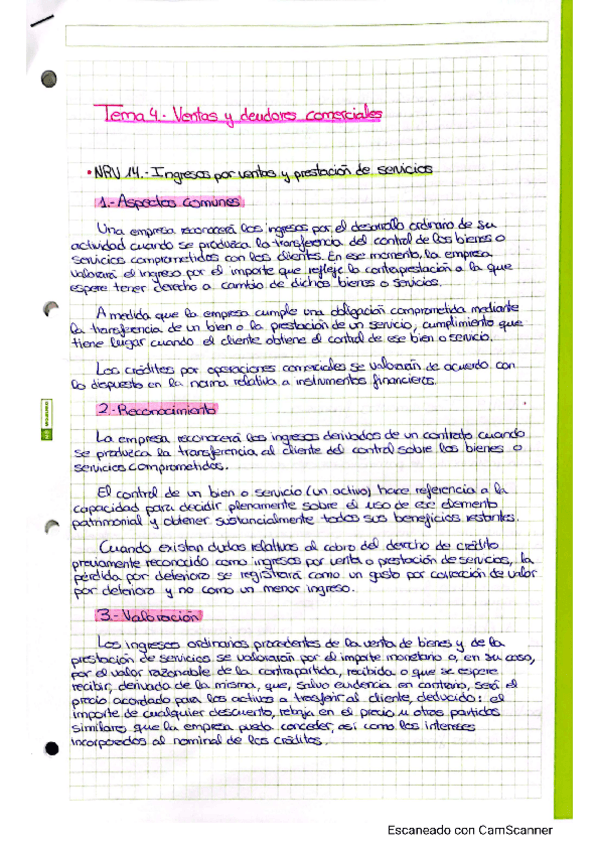 Tema 4.- Ventas y deudores comerciales
• NRV 14.- Ingresos por ventas y prestación de servicios
1.- Aspectos comunes
Una empresa reconocerá los ingresos por el desarrollo ordinario de su
actividad cuando se produzca la transferencia del control de los bienes o
servicios comprometidos con los clientes. En ese momento, la empresa
valorará el ingreso por el importe que refleje la contraprestación a la que
espere tener derecho a cambio de dichos bienes o servicios.
A medida que la empresa cumple una obligación comprometida mediante
la transferencia de un bien o la prestación de un servicio, cumplimiento que
tiene lugar cuando el cliente obtiene el control de ese bien o servicio.
Los créditos por operaciones comerciales se valorarán de acuerdo con
lo dispuesto en la norma relativa a instrumentos financieros.
2.- Reconocimiento
La empresa reconocerá los ingresos derivados de un contrato cuando
se produzca la transferencia al cliente del control sobre los bienes o
servicios comprometidos.
El control de un bien o servicio (un activo) hace referencia a la
capacidad para decidir plenamente sobre el uso de ese elemento
patrimonial y obtener sustancialmente todos sus beneficios restantes.
Cuando existan dudas relativas al cobro del derecho de crédito
previamente reconocido como ingresos por venta o prestación de servicios, la
pérdida por deterioro se registrará como un gasto por corrección de valor
por deterioro y no como un menor ingreso.
3.- Valoración
Los ingresos ordinarios procedentes de la venta de bienes y de la
prestación de servicios se valorarán por el importe monetario o, en su caso,
por el valor razonable de la contrapartida, recibida o que se espere
recibir, derivado de la misma, que, salvo evidencia en contrario, será el
precio acordado para los activos a trasferir al cliente, deducido: el
importe de cualquier descuento, rebaja en el precio u otras partidas
similares que la empresa pueda conceder, así como los intereses
incorporados al nominal de los créditos.
Escaneado con CamScanner